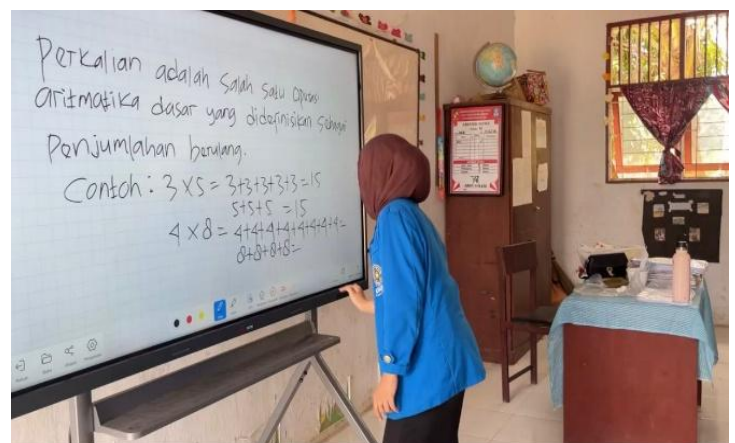 Perkalian adalah salah satu operasi
aritmatika dasar yang didefinisikan sebagai
Penjumlahan berulang.
Contoh: 3 × 5 = 3+3+3+3+3 = 15
5+5+5 = 15
4 × 8 = 4+4+4+4+4+4+4+4 =
8+8+8+8 =